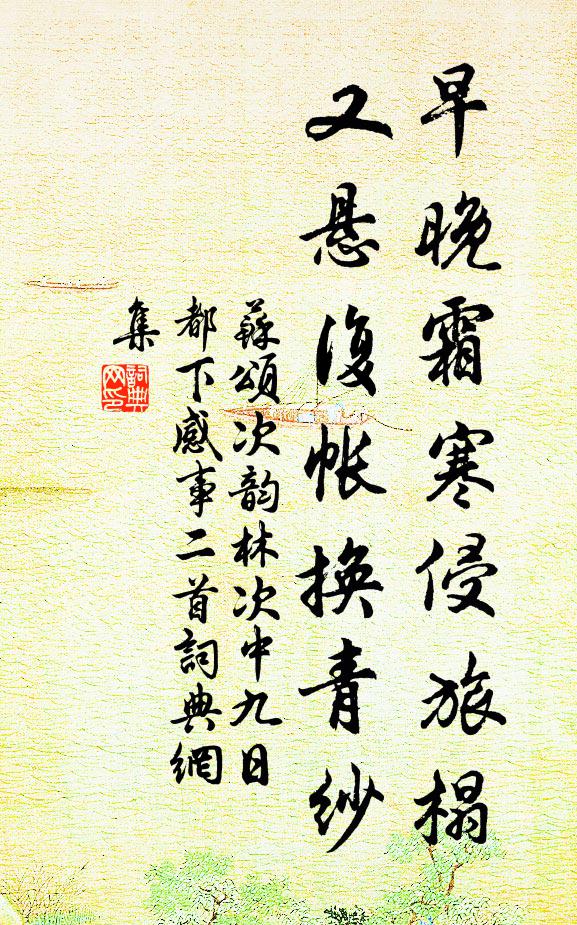 早晚霜寒侵旅榻
又悬復帐换青纱
蘇頌次韵林次中九日
都下感事二首詞典網
集
詞典网印